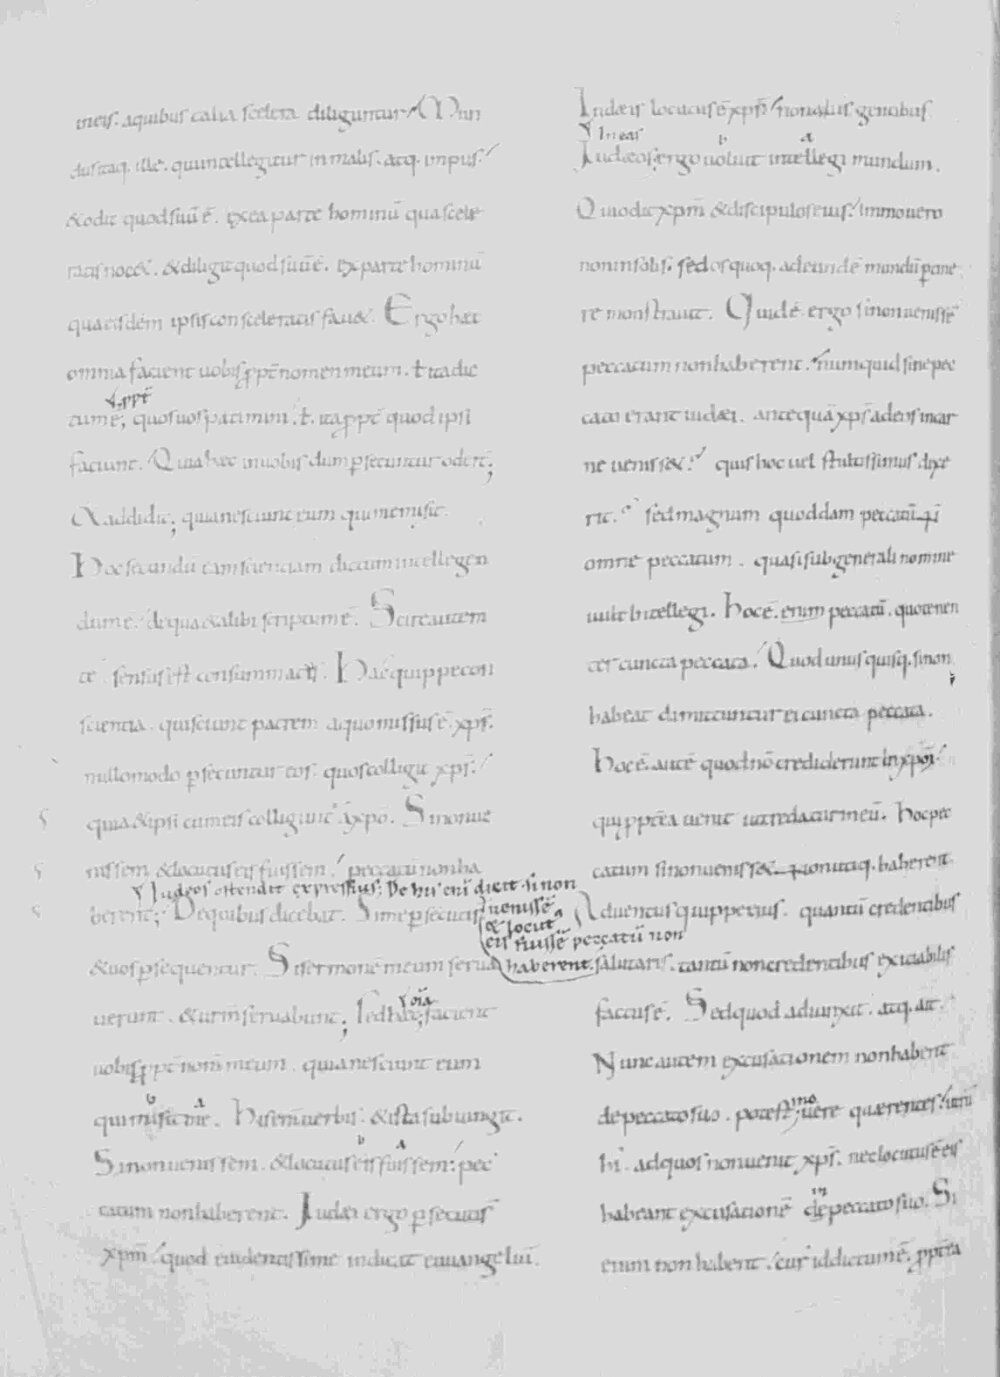 ineis. aquibus talia scelera diliguntur; Mun
dus itaq. ille. qui intellegitur in malis. atq. impiis;
& odit quod suū ē. ex ea parte hominū qua scele
ratis noc&. & diligit quod suū ē. ex parte hominū
qua eisdem ipsis consceleratis fau&. Ergo haec
omnia facient uobis ppt nomen meum. ł ita dic
ł ppt
tumē; quos uos patimini. ł. ita ppt quod ipsi
faciunt. Quia haec in uobis dum psecuntur oderī;
& addidit; quia nesciunt eum qui me misit.
Hoc secundū eam scientiam dictum intellegen
dum ē. de qua & alibi scriptum ē. Scire autem
te sensus est consummatus. Hac quippe con
scientia. qui sciunt patrem a quo missus ē. xps.
nullo modo psecuntur eos. quos colligit xps.
quia & ipsi cum eis colliguntˀ a xpō. Si non ue
nissem & locutus eis fuissem. peccatū non ha
Iudeos ostendit expressius; De his eni dicit. si non
uenissē & locut9 eis fuissē peccatū non haberent.
berent; De quibus dicebat. Si me psecuti s̄
& uos psequentur. Si sermonē meum serua
uerunt. & urm̄ seruabunt; sed haec
oīa
facient
uobis ppt nom̄ meum. quia nesciunt eum
b a
qui misit me. His em̄ uerbis. & ista subiungit.
b a
Si non uenissem. & locutus eis fuissem. pec
catum non haberent. Iudaei ergo psecuti s̄
xpm̄. quod euidentissime indicat euuangeliū.
Iudaeis locutus ē xps. non aliis gentibus
ł In eis b a
Iudaeos ergo uoluit intellegi mundum.
Qui odit xpm̄ & discipulos eius. Immo uero
non in solis. sed os quoq. ad eundē mundū ptine
re monstrauit. Quid ē ergo si non uenissē
peccatum non haberent. numquid sine pec
cato erant iudaei. antequā xps ad eos in car
ne uenisset. quis hoc uel stultissimus dixe
rit. sed magnum quoddam peccatū. n̄
omne peccatum. quasi sub generali nomine
uult intellegi. Hoc ē. enim peccatū. quo tenen
ter cuncta peccata. Quod unus quisq. si non
habeat dimittuntur ei cuncta peccata.
Hoc ē. autē quod nō crediderunt in xpm̄.
qui pptea uenit ut credatur in eū. Hoc pec
catum si non uenisset. non utiq. haberent.
Aduentus quippe eius. quantū credentibus
salutaris. tantū non credentibus exitiabilis
factus ē. Sed quod adiunxit. atq. ait.
Nunc autem excusationem non habent
mo
de peccato suo. potest uere quaerentes. utrū
hi. ad quos non uenit xps. nec locutus ē eis
in
habeant excusationē de peccato suo. Si
enim non habent. cur id dictum ē. pptea